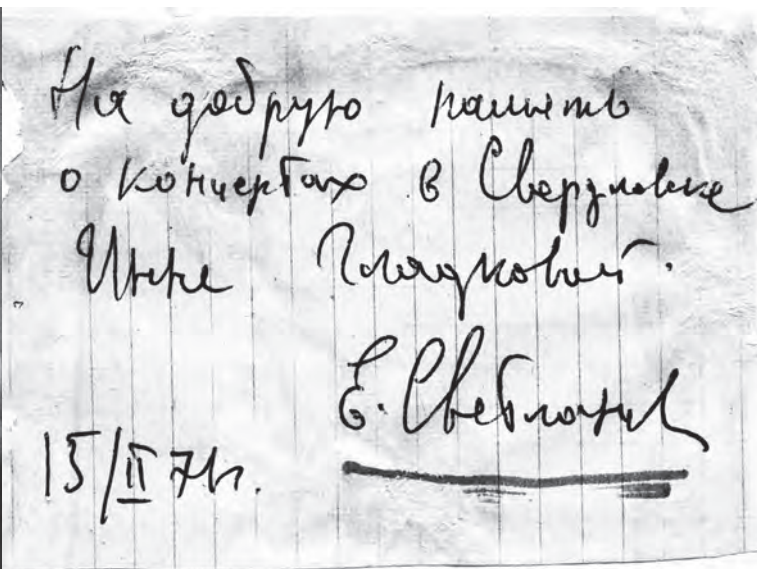 На добрую память
о концертах в Свердловске
Инне Гладковой.
Е. Светланов
15/II 71г.